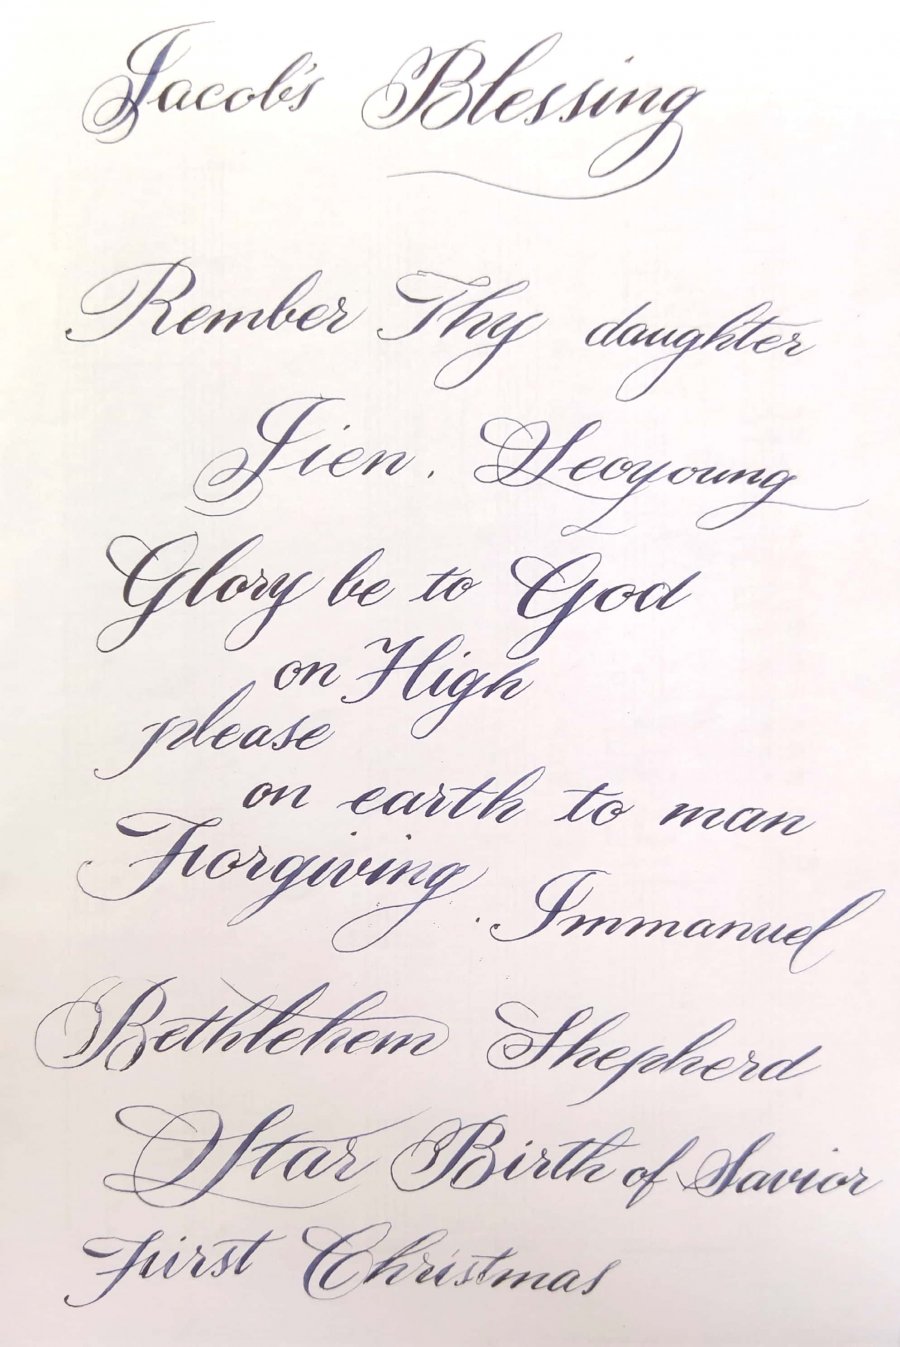 Jacob's Blessing
Rember Thy daughter
Jien. Seoyoung
Glory be to God
on High
please
on earth to man
Forgiving. Immanuel
Bethlehem Shepherd
Star Birth of Savior
First Christmas